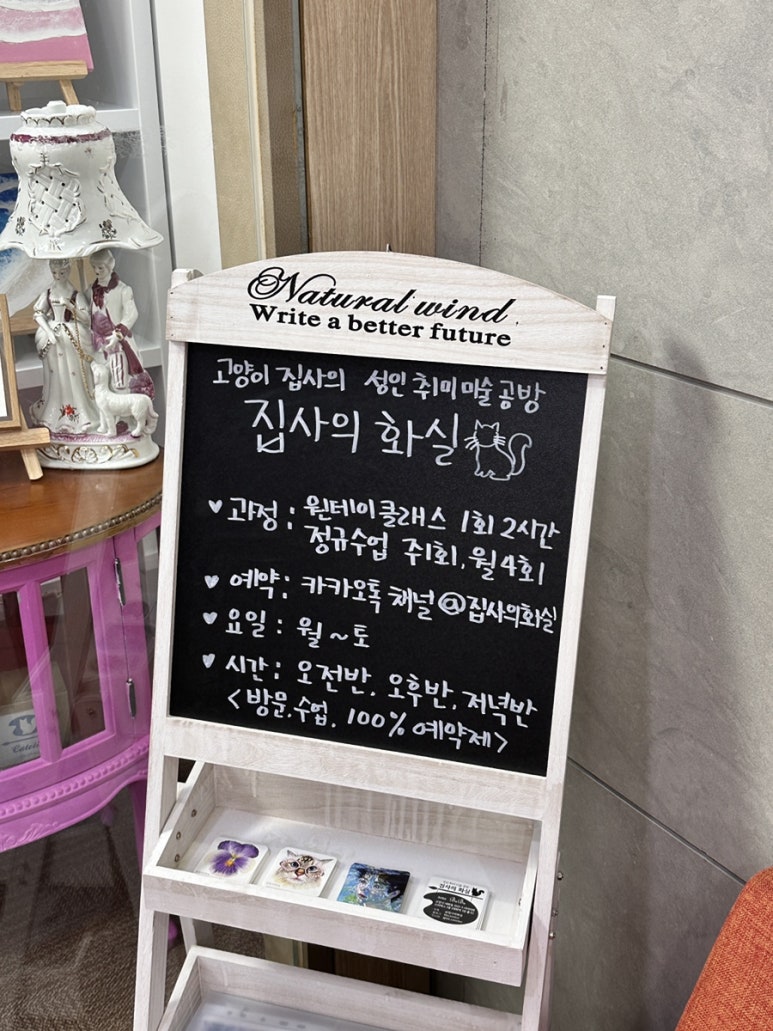 Natural wind
Write a better future
고양이 집사의 성인 취미 미술 공방
집사의 화실
♥ 과정 : 원데이 클래스 1회 2시간
정규수업 주1회, 월4회
♥ 예약 : 카카오톡 채널 @집사의화실
♥ 요일 : 월 ~ 토
♥ 시간 : 오전반, 오후반, 저녁반
<방문, 수업, 100% 예약제>
집사의 화실